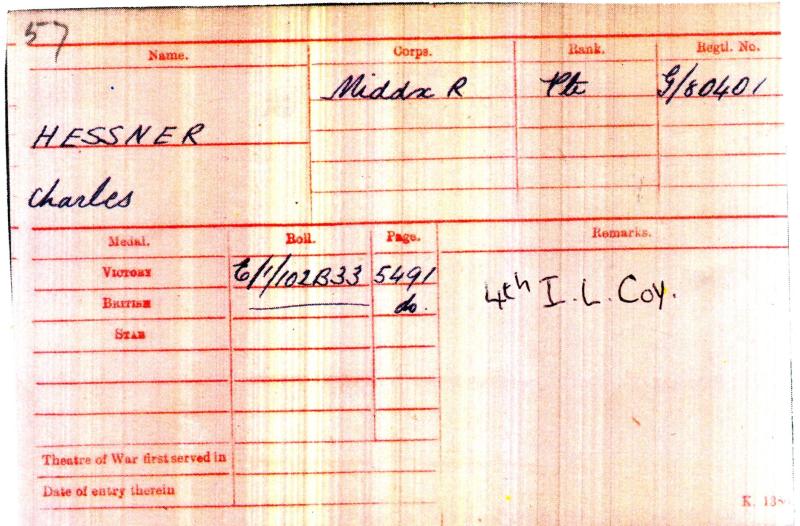 57
Name. Corps. Rank. Regtl. No.
Middx R Pte G/80401
HESSNER
Charles
Medal. Roll. Page. Remarks.
VICTORY E/1/102B33 5491
BRITISH do. 4th I.L. Coy.
STAR
Theatre of War first served in
Date of entry therein
K. 1380